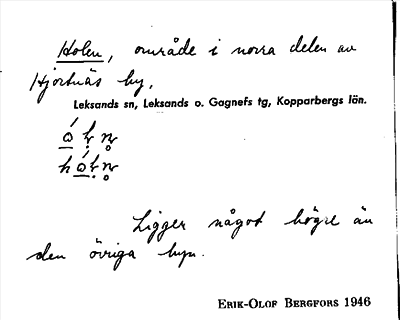 Holen, område i norra delen av
Hjortnäs by.
Leksands sn, Leksands o. Gagnefs tg, Kopparbergs län.
Ligger något högre än
den övriga byn.
ERIK-OLOF BERGFORS 1946